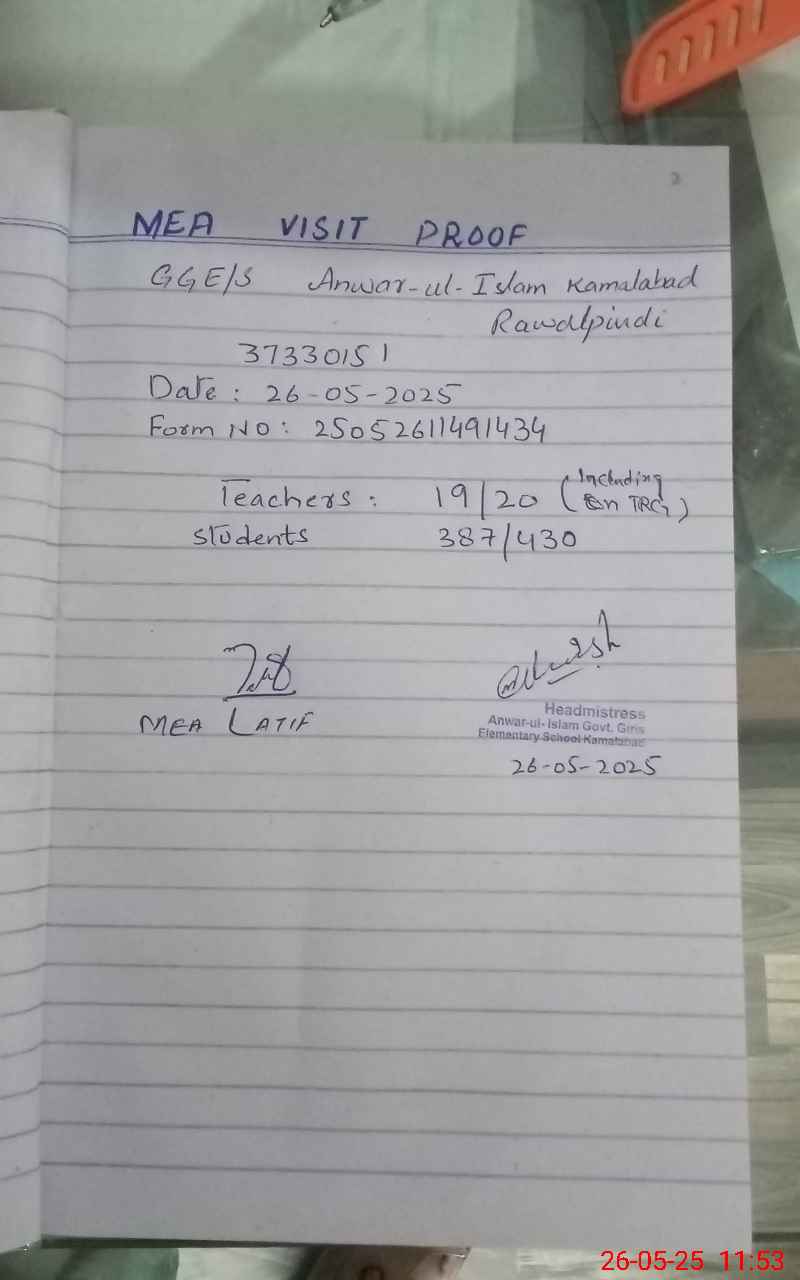 2
MEA VISIT PROOF
GGE/S Anwar-ul-Islam Kamalabad
Rawalpindi
37330151
Date : 26-05-2025
Form NO : 25052611491434
Teachers : 19/20 (Including On TRG)
Students 387/430
MEA LATIF
Headmistress
Anwar-ul-Islam Govt. Girls
Elementary School Kamalabad
26-05-2025
26-05-25 11:53